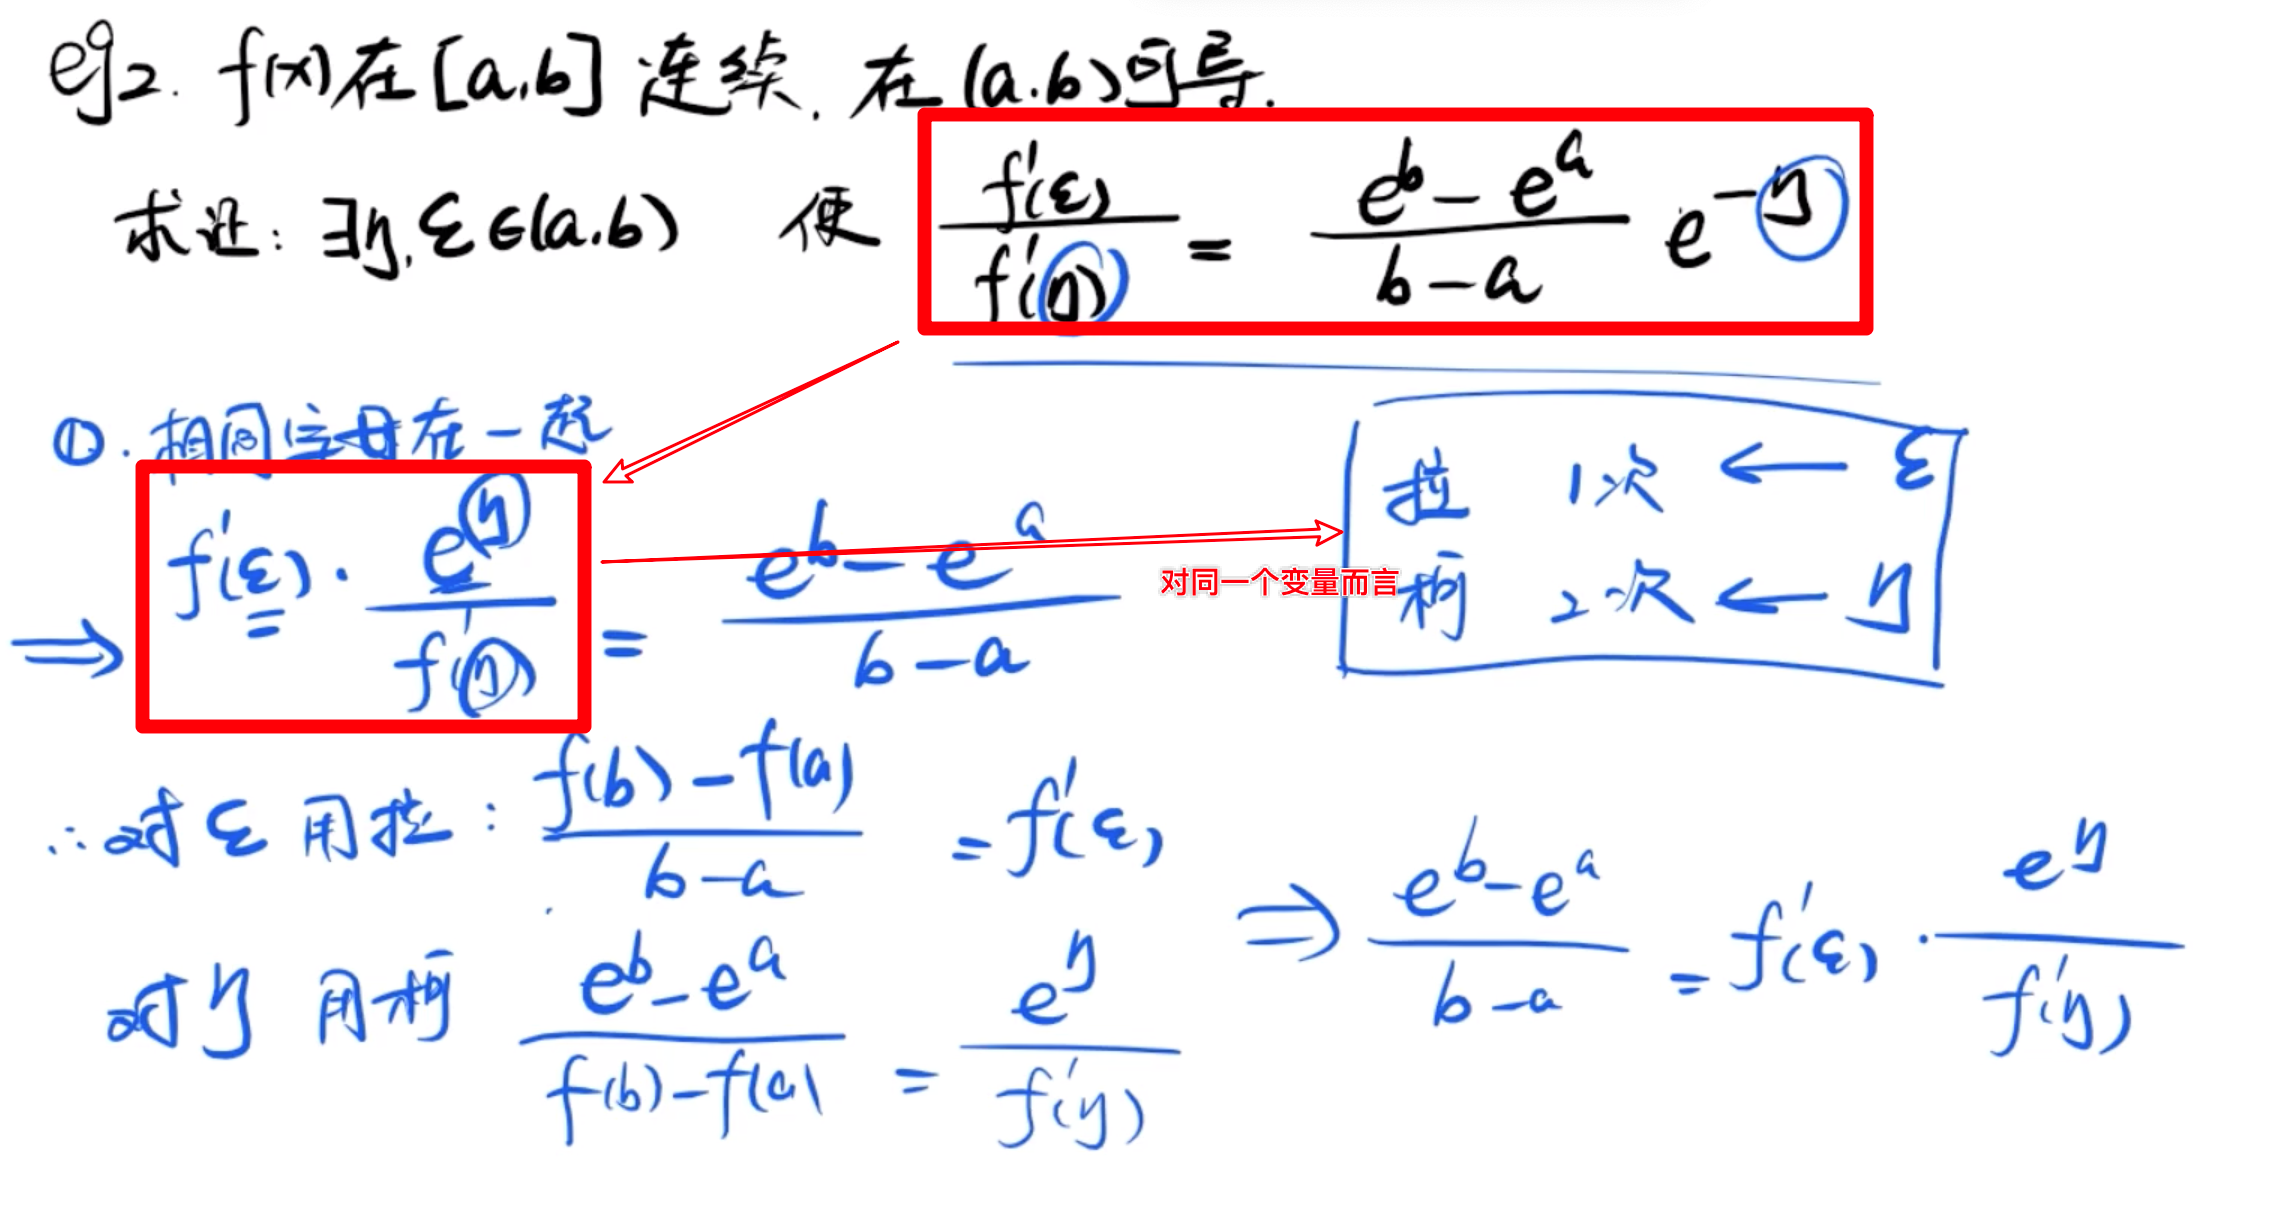 eg2. f(x)在[a,b]连续.在(a.b)可导.
求证：∃η,ξ∈(a.b) 使 f'(ξ)/f'(η) = (e^b-e^a)/(b-a) e^-η
①.相同字母在一起
⇒ f'(ξ)·e^η/f'(η) = (e^b-e^a)/(b-a)
拉 1次 ← ξ
对同一个变量而言
柯 2次 ← η
∴对ξ用拉：(f(b)-f(a))/(b-a) = f'(ξ)
对η用柯 (e^b-e^a)/(f(b)-f(a)) = e^η/f'(η)
⇒ (e^b-e^a)/(b-a) = f'(ξ)·e^η/f'(η)